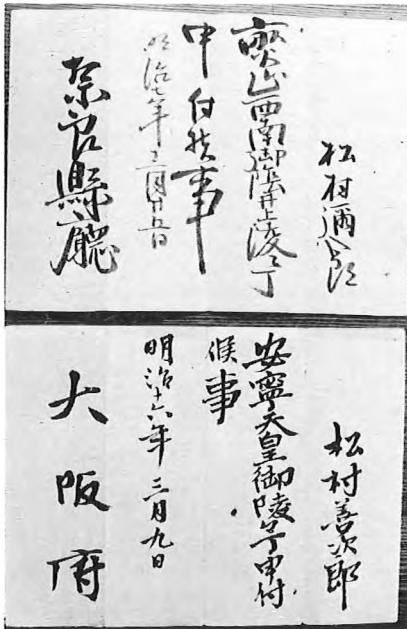 松村彌八郎
畝火山西南御陰井上陵丁
申付候事
明治七年三月廿五日
奈良縣廳
松村善次郎
安寧天皇御陵丁申付
候事
明治十六年三月九日
大阪府